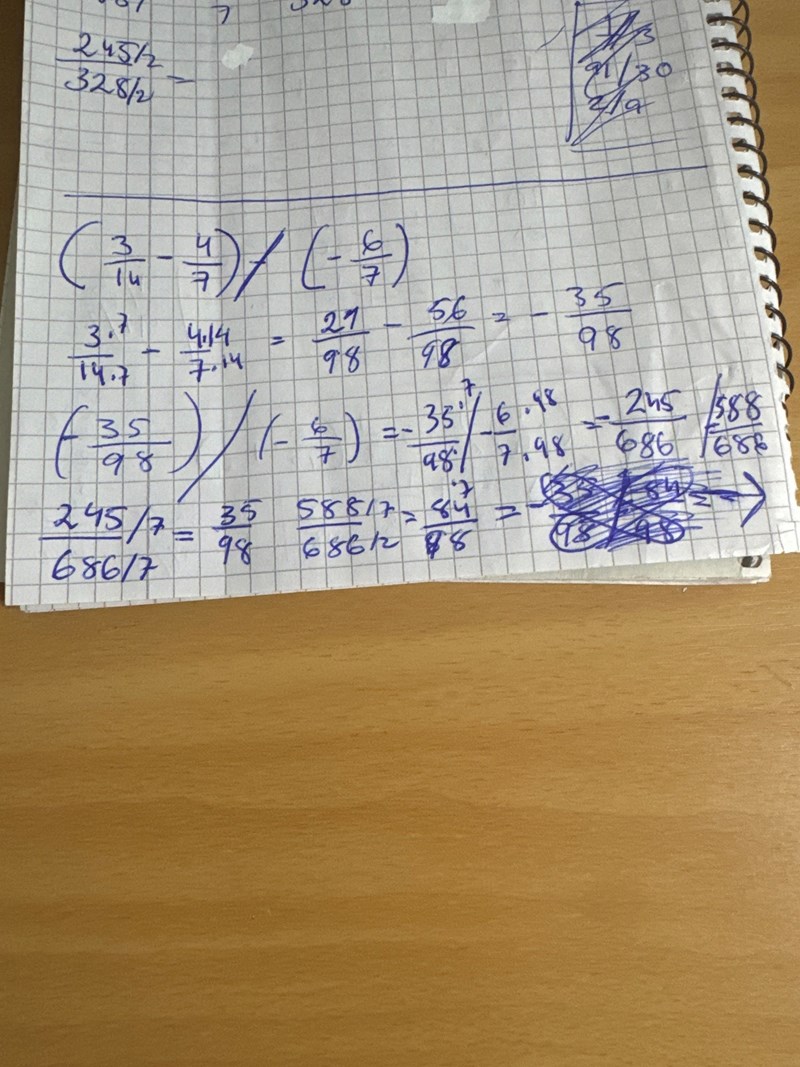 245/2
328/2 =
(3/14 - 4/7) / (- 6/7)
3·7/14·7 - 4·14/7·14 = 21/98 - 56/98 = - 35/98
(- 35/98) / (- 6/7) = - 35·7/98·7 / - 6·98/7·98 = - 245/686 / - 588/686
245/7/686/7 = 35/98 588/7/686/2 = 84/98 = →